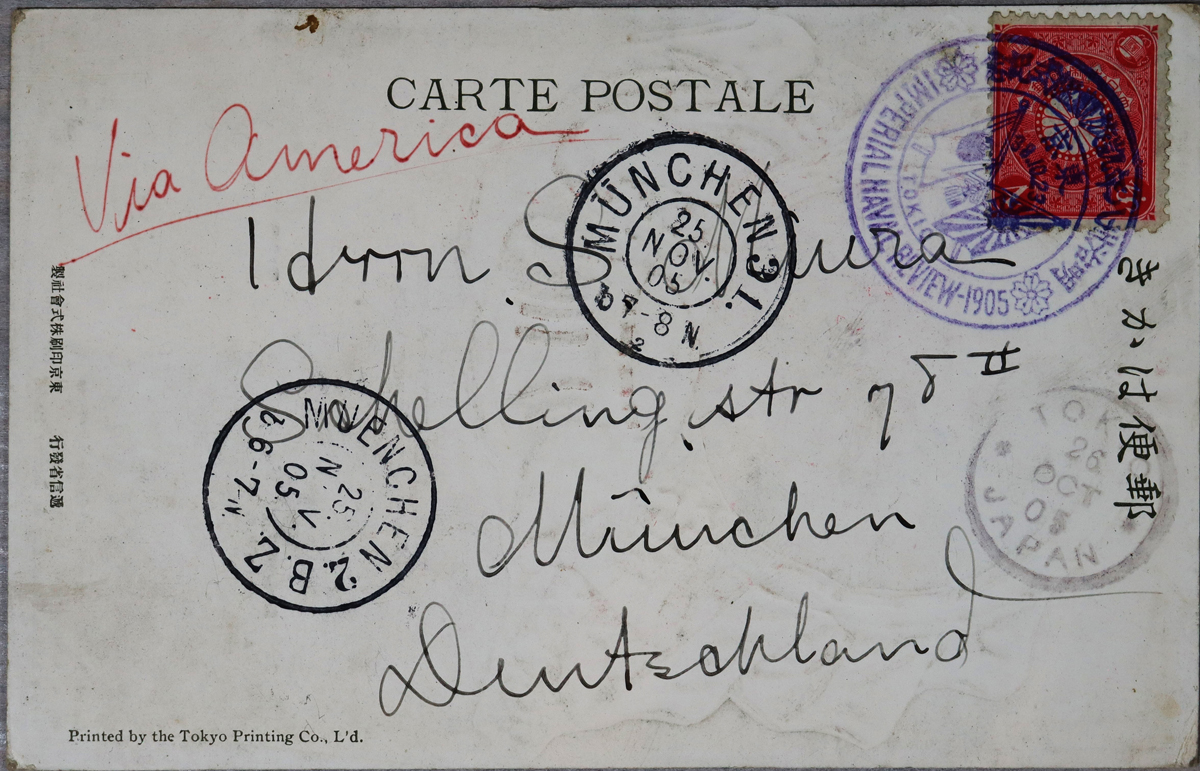 CARTE POSTALE
Via America
Herrn
Schelling str
München
Deutschland
MÜNCHEN 31.
25
NOV.
05
7-8 N.
2
MUENCHEN 2. B.Z.
25
N V.
05
6-7
IMPERIAL NAVAL REVIEW-1905
TOKIO
TOKIO
26
OCT
05
JAPAN
きかは便郵
製社會式株刷印京東
行發省信逓
Printed by the Tokyo Printing Co., L'd.